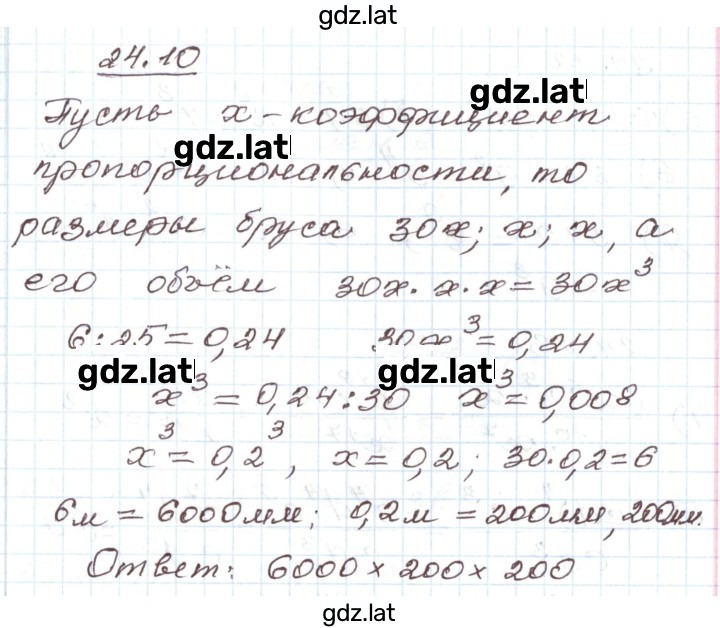 gdz.lat
24.10
gdz.lat
Пусть x - коэффициент
gdz.lat
пропорциональности, то
размеры бруса 30x; x; x, а
его объём 30x · x · x = 30x³
6 : 25 = 0,24 30x³ = 0,24
gdz.lat gdz.lat
x³ = 0,24 : 30 x³ = 0,008
x³ = 0,2³, x = 0,2; 30·0,2=6
6м = 6000мм; 0,2м = 200мм, 200мм.
Ответ: 6000 × 200 × 200
gdz.lat